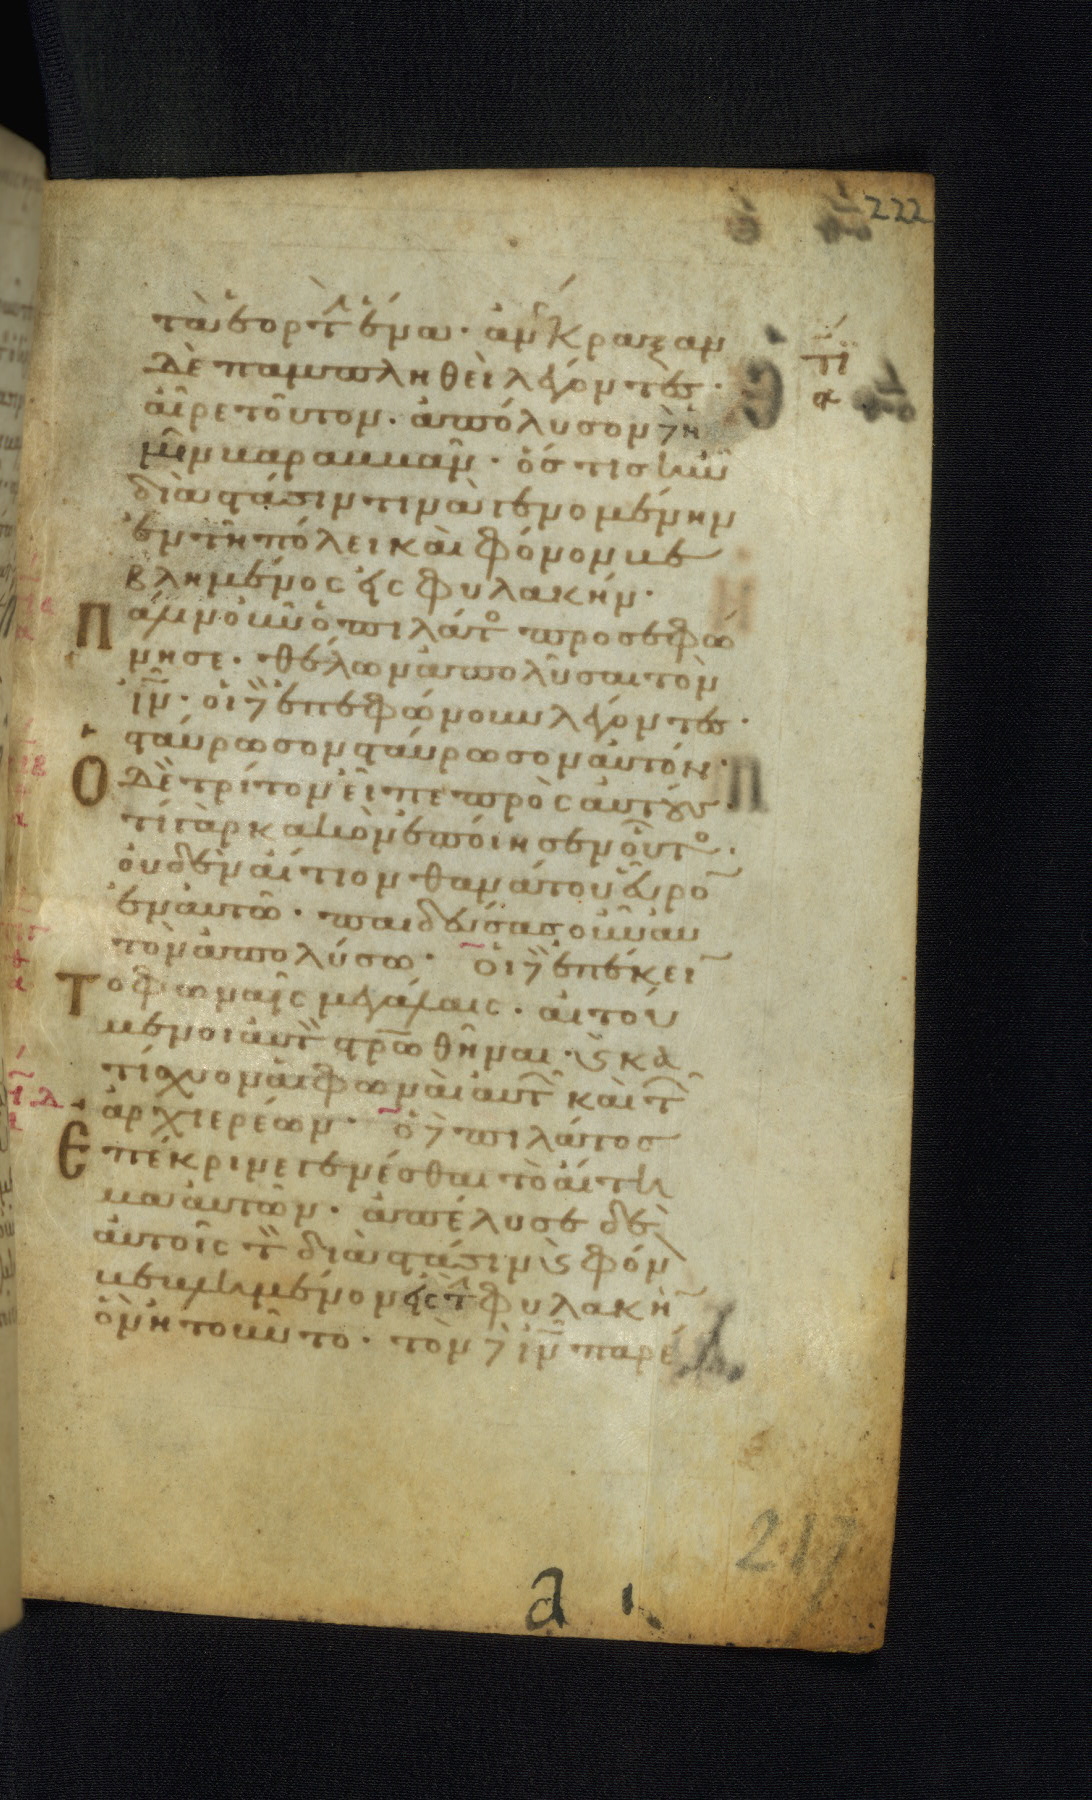 222
τὰ ἑορτὴν ἕνα· ἀνέκραξαν
δὲ παμπληθεὶ λέγοντες·
αἶρε τοῦτον· ἀπόλυσον δὲ ἡ
μῖν βαραββᾶν· ὅστις ἦν
διὰ στάσιν τινὰ γενομένην
ἐν τῇ πόλει καὶ φόνον βε
βλημένος εἰς φυλακήν·
Πάλιν οὖν ὁ πιλάτος προσεφώ
νησε· θέλων ἀπολῦσαι τὸν
ἰν̅· οἱ δὲ ἐπεφώνουν λέγοντες·
σταύρωσον σταύρωσον αὐτόν·
Ὁ δὲ τρίτον εἶπε πρὸς αὐτούς·
τί γὰρ κακὸν ἐποίησεν οὗτος·
οὐδὲν αἴτιον θανάτου εὗρον
ἐν αὐτῷ· παιδεύσας οὖν αὐ
τὸν ἀπολύσω· οἱ δὲ ἐπέκειν
Το φωναῖς μεγάλαις· αἰτού
μενοι αὐτὸν σταυρωθῆναι· καὶ κα
τίσχυον αἱ φωναὶ αὐτῶν καὶ τῶν
ἀρχιερέων· ὁ δὲ πιλάτος
Ἐπέκρινε γενέσθαι τὸ αἴτη
μα αὐτῶν· ἀπέλυσε δὲ
αὐτοῖς τὸν διὰ στάσιν καὶ φόν
βεβλημένον εἰς τὴν φυλακὴν
ὃν ᾐτοῦντο· τὸν δὲ ἰν̅ παρέ
217
a